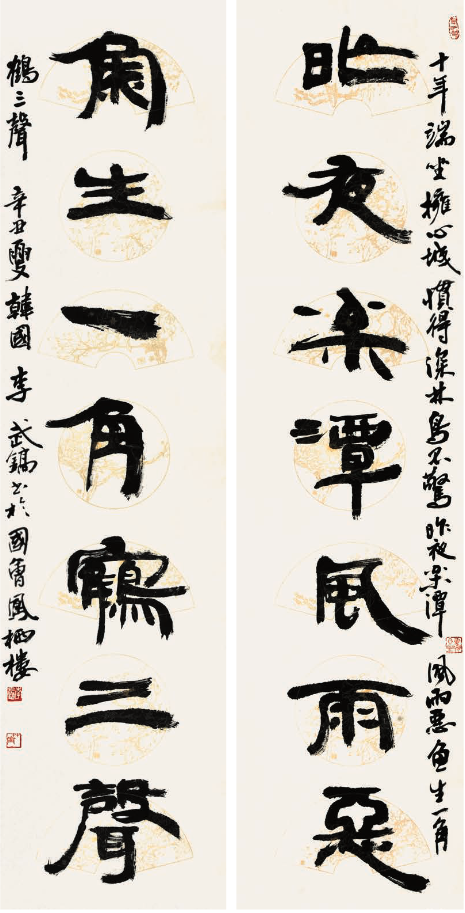 十年端坐擁心城慣得深林鳥不驚昨夜枀潭風雨惡魚生一角
昨夜枀潭風雨惡
魚生一角鶴三聲
鶴三聲 辛丑夏 韓國 李武鎬书於國會鳳栖樓